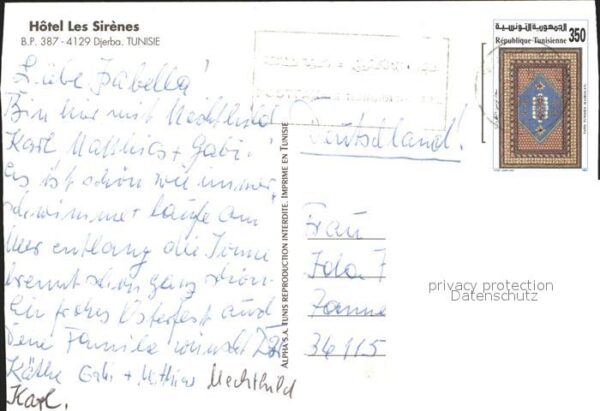 Hôtel Les Sirènes
B.P. 387 - 4129 Djerba. TUNISIE
الجمهورية التونسية
République Tunisienne 350
Liebe Isabella!
Bin hier mit Mechthild
Karl Matthias + Gabi!
Es ist schön wie immer,
schwimme + laufe am
Meer entlang die Sonne
brennt schon ganz schön
Ein frohes Osterfest auch
Deine Familie wünscht
Käthe Gabi + Matthias Mechthild
Karl.
ALPHA S.A. TUNIS REPRODUCTION INTERDITE. IMPRIME EN TUNISIE
Deutschland!
Frau
Ida
36115
privacy protection
Datenschutz